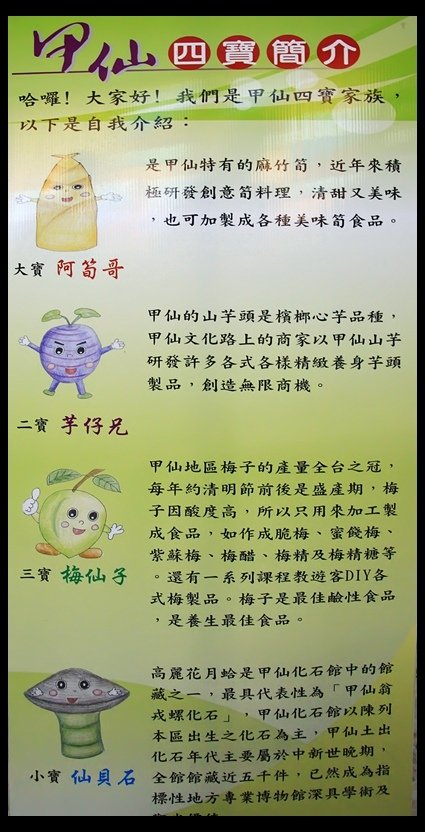 甲仙四寶簡介
哈囉！大家好！我們是甲仙四寶家族，
以下是自我介紹：
是甲仙特有的麻竹筍，近年來積
極研發創意筍料理，清甜又美味
，也可加製成各種美味筍食品。
大寶 阿筍哥
甲仙的山芋頭是檳榔心芋品種，
甲仙文化路上的商家以甲仙山芋
研發許多各式各樣精緻養身芋頭
製品，創造無限商機。
二寶 芋仔兄
甲仙地區梅子的產量全台之冠，
每年約清明節前後是盛產期，梅
子因酸度高，所以只用來加工製
成食品，如作成脆梅、蜜餞梅、
紫蘇梅、梅醋、梅精及梅精糖等
。還有一系列課程教遊客DIY各
式梅製品。梅子是最佳鹼性食品
，是養生最佳食品。
三寶 梅仙子
高麗花月蛤是甲仙化石館中的館
藏之一，最具代表性為「甲仙翁
戎螺化石」，甲仙化石館以陳列
本區出生之化石為主，甲仙土出
化石年代主要屬於中新世晚期，
全館館藏近五千件，已然成為指
標性地方專業博物館深具學術及
小寶 仙貝石